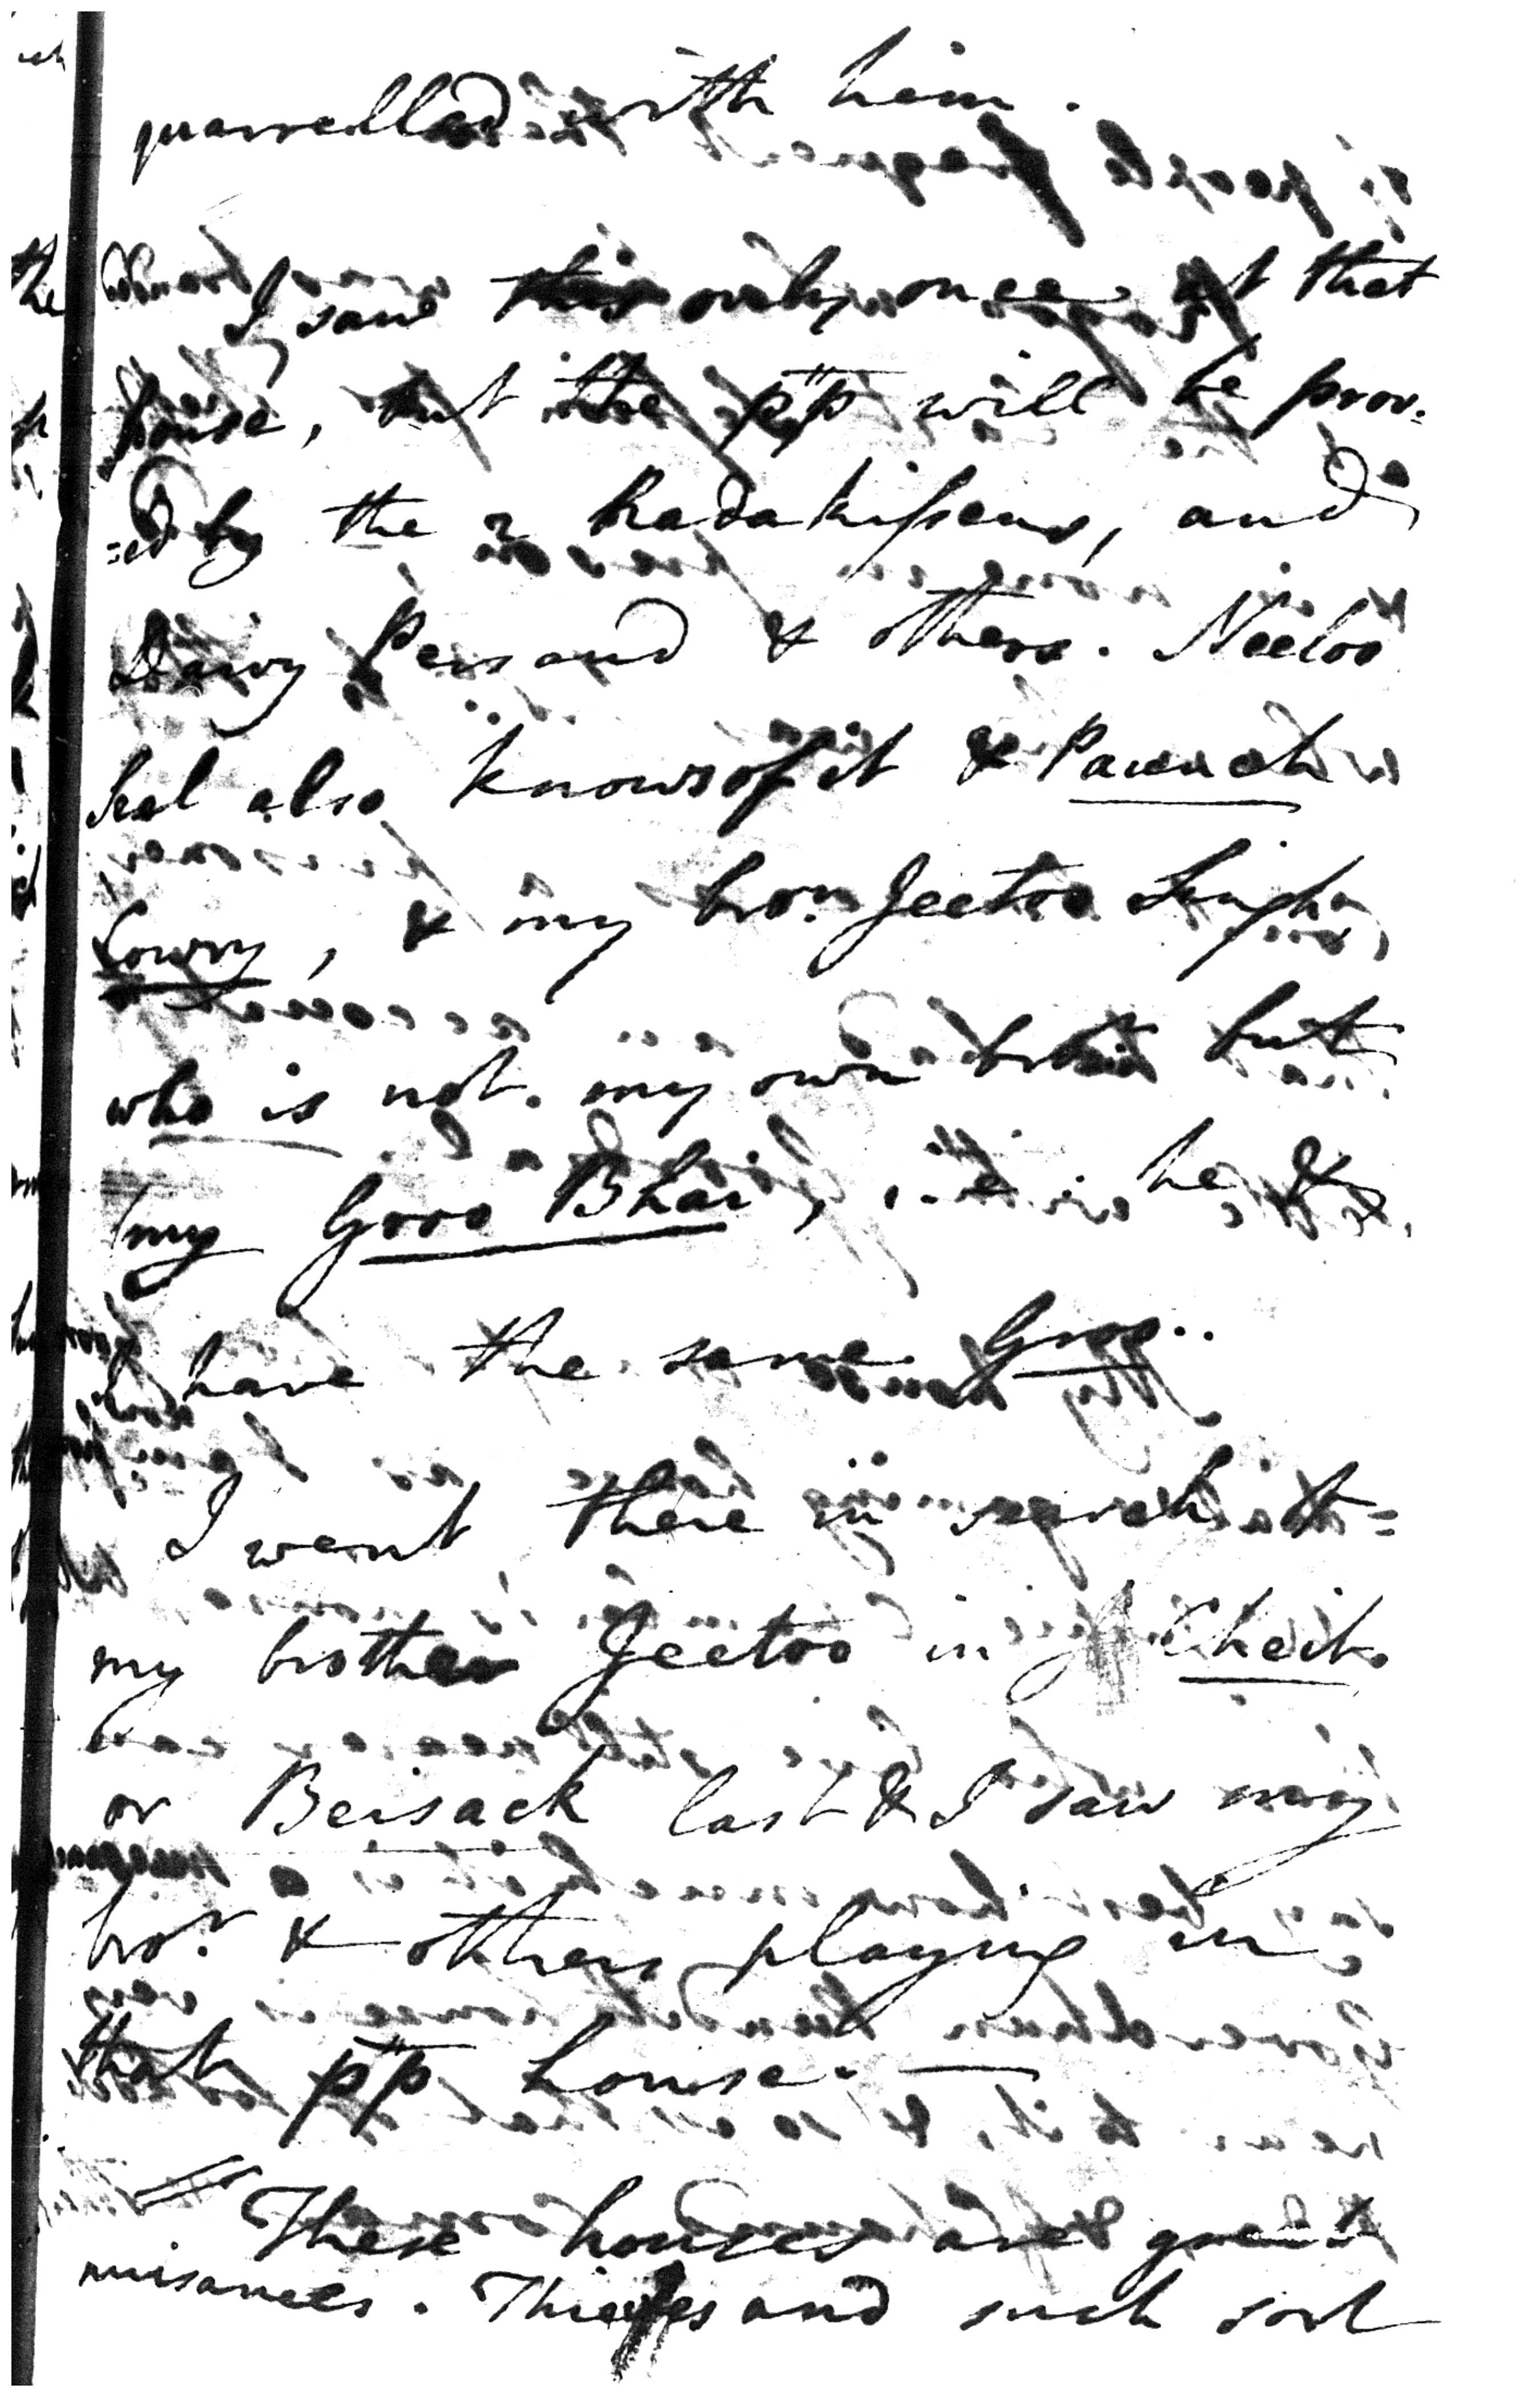 quarrelled with him.
I saw this only once at that
house, but the p:p will be prov=
=ed by the 2 Radakissens, and
Dawy Persaud & others. Neeloo
Seal also knows of it & Pawnch
Cowry, & my bror. Jeetoo Singh,
who is not my own but
my Gooo Bhai, i.e. he &
I have the same Gooo..
I went there in search of=
my brother Jeetoo in Cheit
or Beisack last & I saw my
bror. & others playing in
that p:p house.—
These houses are great
nuisances. Thieves and such sort